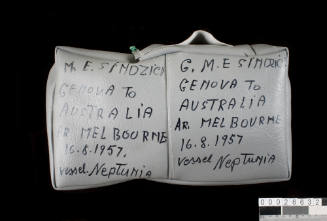 M. E. SINDZICH
GENOVA TO
AUSTRALIA
AR. MELBOURNE
16.8.1957.
vessel Neptunia
G. M. E SINDZICH
GENOVA TO
AUSTRALIA
AR. MELBOURNE
16.8.1957
vessel Neptunia
00028632